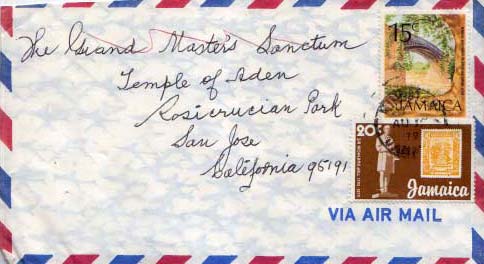 The Grand Master's Sanctum
Temple of Aden
Rosicrucian Park
San Jose
California 95191
15c
JAMAICA
20c
Jamaica
VIA AIR MAIL